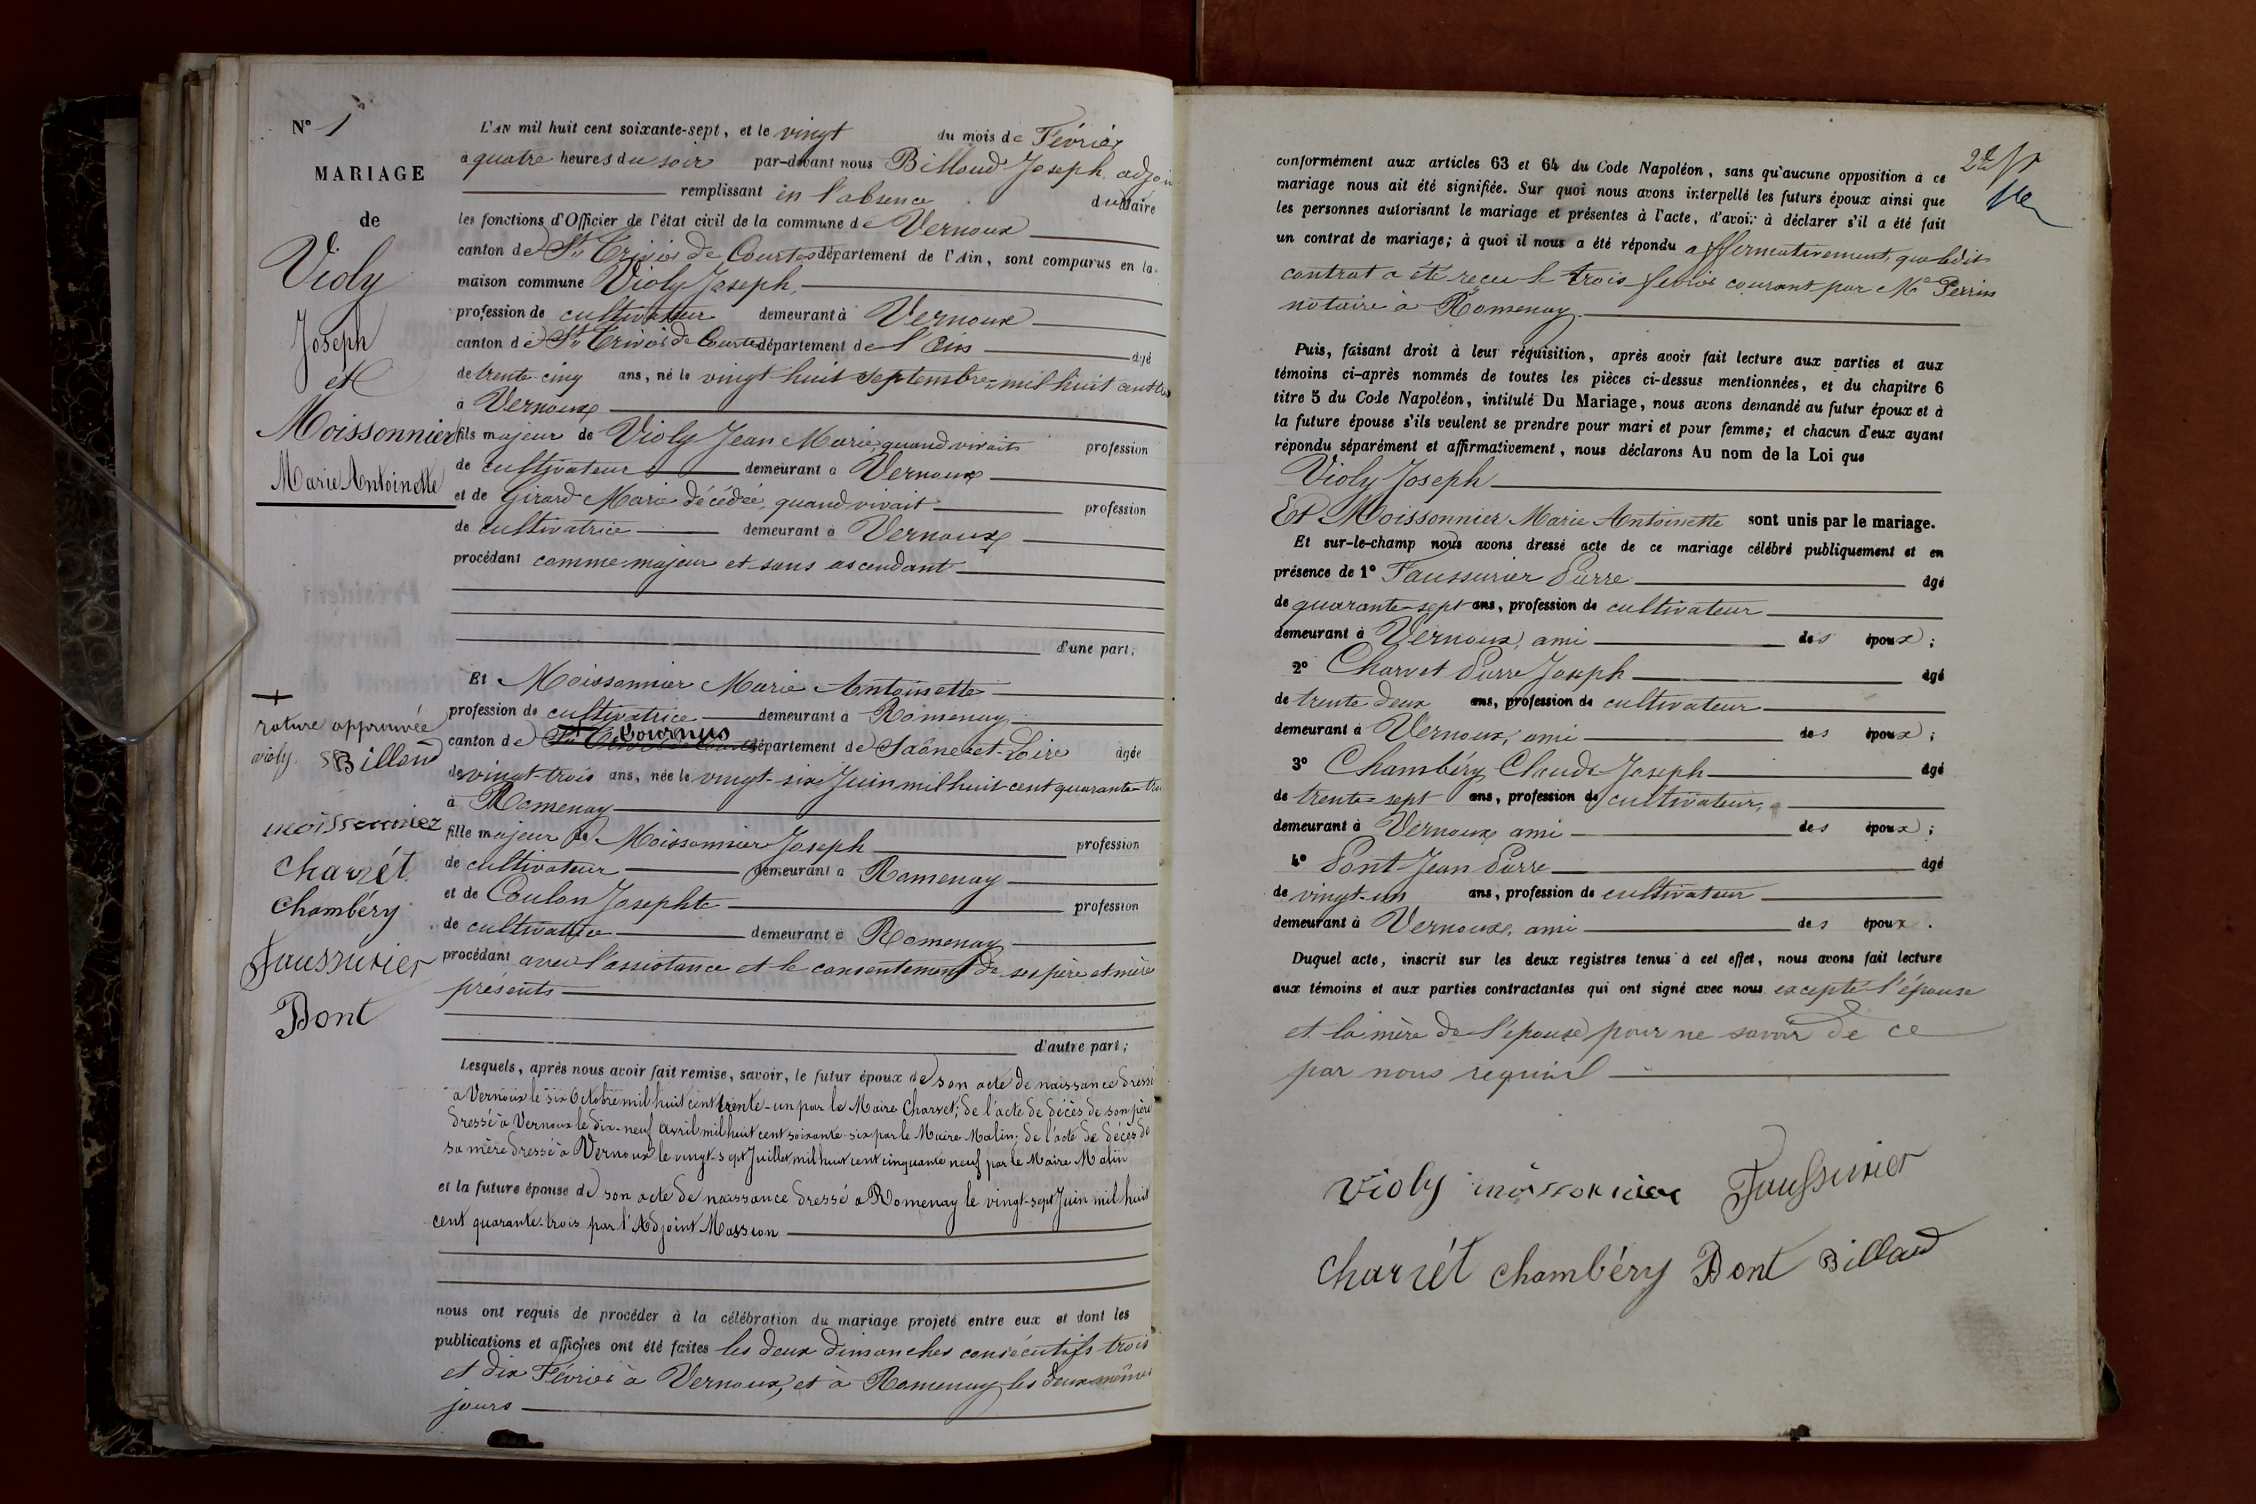 N° 1
MARIAGE
de
Violy
Joseph
et
Moissonnier
Marie Antoinette
rature approuvée
violy Billoud
moissonnier
Charvét
Chambéry
Faussurier
Pont
L'AN mil huit cent soixante-sept, et le vingt du mois de Février
à quatre heures du soir par-devant nous Billoud Joseph, adjoin
remplissant en l'absence du Maire
les fonctions d'Officier de l'état civil de la commune de Vernoux
canton de St Trivier de Courtes département de l'Ain, sont comparus en la
maison commune Violy Joseph,
profession de cultivateur demeurant à Vernoux
canton de St Trivier de Courtes département de l'Ain âgé
de trente-cinq ans, né le vingt huit Septembre mil huit cent
à Vernoux
fils majeur de Violy Jean Marie, quand vivait profession
de cultivateur demeurant à Vernoux
et de Girard Marie décédée, quand vivait profession
de cultivatrice demeurant à Vernoux
procédant comme majeur et sans ascendant
d'une part;
Et Moissonnier Marie Antoinette
profession de cultivatrice demeurant à Romenay
canton de Tournus département de Saône-et-Loire âgée
de vingt-trois ans, née le vingt-six Juin mil huit cent quarante-
à Romenay
fille majeur de Moissonnier Joseph profession
de cultivateur demeurant à Romenay
et de Coulon Josephte profession
de cultivatrice demeurant à Romenay
procédant avec l'assistance et le consentement de ses père et mère
présents
d'autre part;
Lesquels, après nous avoir fait remise, savoir, le futur époux de son acte de naissance dressé
à Vernoux le six Octobre mil huit cent trente-un par le Maire Charvet; de l'acte de décès de son père
dressé à Vernoux le dix-neuf Avril mil huit cent soixante-six par le Maire Malin; de l'acte de décès de
sa mère dressé à Vernoux le vingt-sept Juillet mil huit cent cinquante neuf par le Maire Malin
et la future épouse de son acte de naissance dressé à Romenay le vingt-sept Juin mil huit
cent quarante-trois par l'Adjoint Massion
nous ont requis de procéder à la célébration du mariage projeté entre eux et dont les
publications et affiches ont été faites les deux dimanches consécutifs trois
et dix Février à Vernoux, et à Romenay les deux mêmes
jours
2e
conformément aux articles 63 et 64 du Code Napoléon, sans qu'aucune opposition à ce
mariage nous ait été signifiée. Sur quoi nous avons interpellé les futurs époux ainsi que
les personnes autorisant le mariage et présentes à l'acte, d'avoir à déclarer s'il a été fait
un contrat de mariage; à quoi il nous a été répondu affermativement, que ledit
contrat a été reçu le trois fevrier courant par Me Perrin
notaire à Romenay.
Puis, faisant droit à leur réquisition, après avoir fait lecture aux parties et aux
témoins ci-après nommés de toutes les pièces ci-dessus mentionnées, et du chapitre 6
titre 5 du Code Napoléon, intitulé Du Mariage, nous avons demandé au futur époux et à
la future épouse s'ils veulent se prendre pour mari et pour femme; et chacun d'eux ayant
répondu séparément et affirmativement, nous déclarons Au nom de la Loi que
Violy Joseph
Et Moissonnier Marie Antoinette sont unis par le mariage.
Et sur-le-champ nous avons dressé acte de ce mariage célébré publiquement et en
présence de 1° Faussurier Pierre âgé
de quarante-sept ans, profession de cultivateur
demeurant à Vernoux, ami des époux;
2° Charvet Pierre Joseph âgé
de trente deux ans, profession de cultivateur
demeurant à Vernoux, ami des époux;
3° Chambéry Claude Joseph âgé
de trente-sept ans, profession de cultivateur,
demeurant à Vernoux ami des époux;
4° Pont Jean Pierre âgé
de vingt-un ans, profession de cultivateur
demeurant à Vernoux, ami des époux.
Duquel acte, inscrit sur les deux registres tenus à cet effet, nous avons fait lecture
aux témoins et aux parties contractantes qui ont signé avec nous excepté l'épouse
et la mère de l'épouse pour ne savoir de ce
par nous requises
Violy moissonnier Faussurier
Charvét Chambéry Pont Billoud